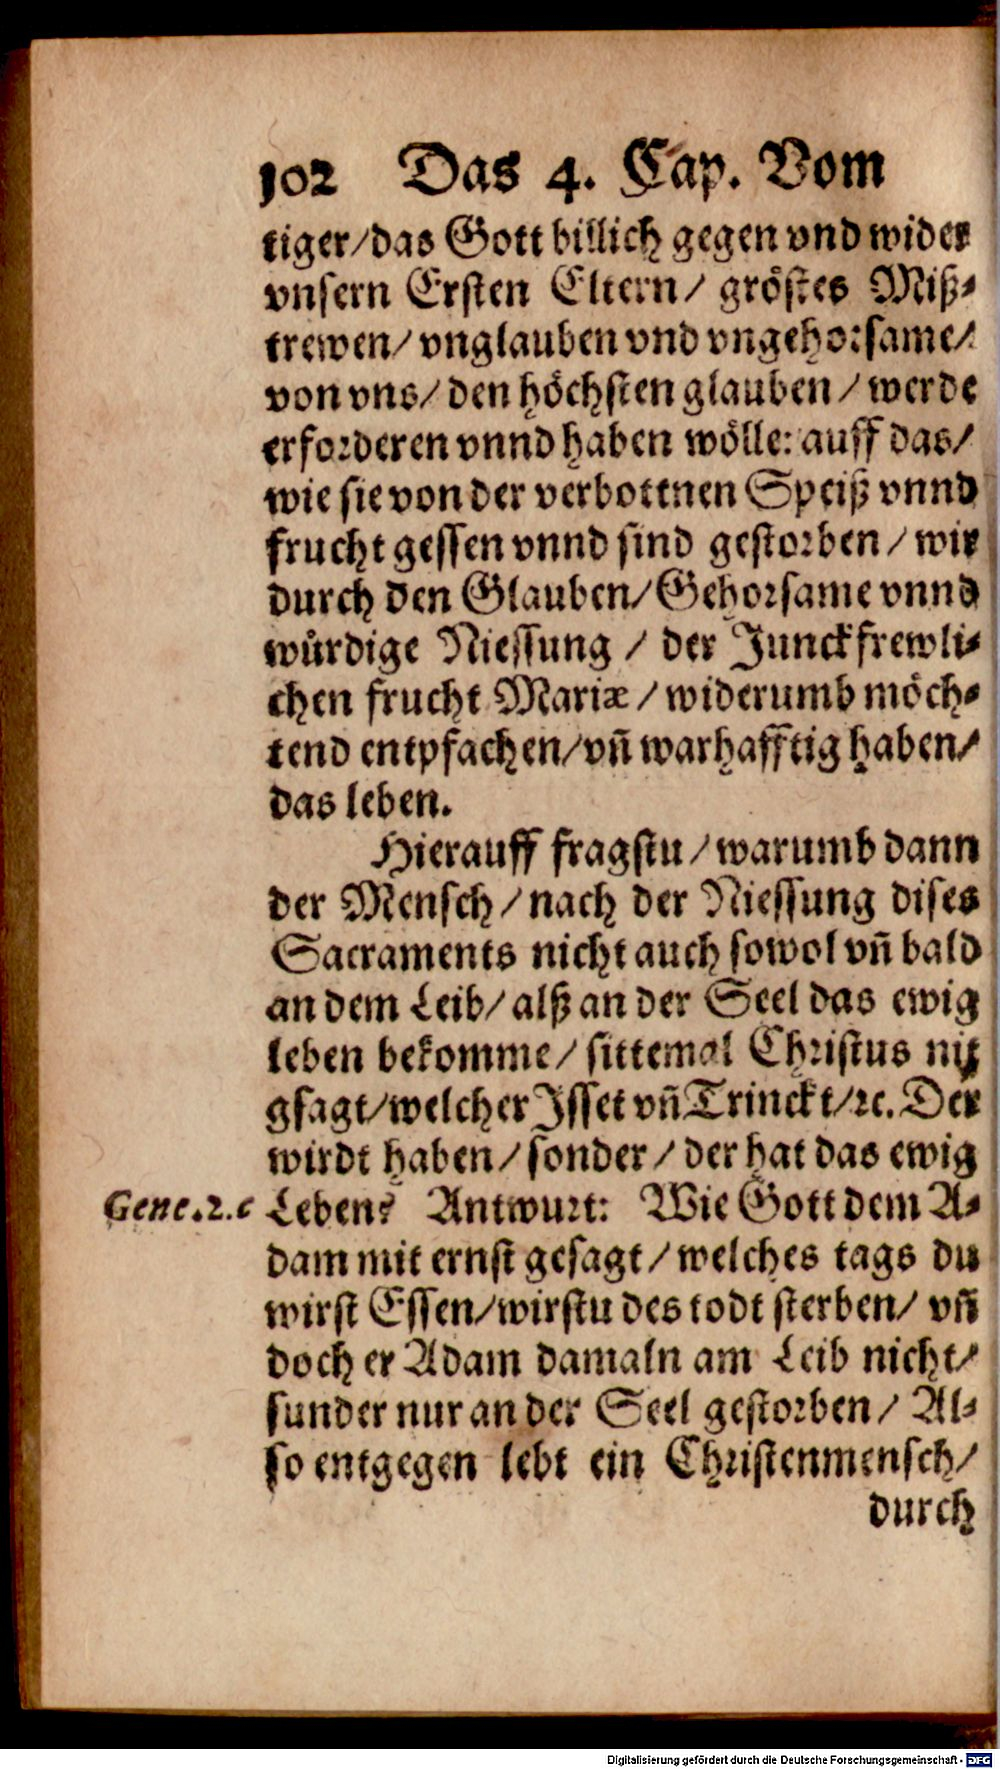 102 Das 4. Cap. Vom
tiger/das Gott billich gegen vnd wider
vnsern Ersten Eltern/ gröstes Miß-
trewen/ vnglauben vnd vngehorsame/
von vns/ den höchsten glauben/ werde
erforderen vnnd haben wölle: auff das/
wie sie von der verbottnen Speiß vnnd
frucht gessen vnnd sind gestorben/ wir
durch den Glauben/Gehorsame vnnd
wůrdige Niessung/ der Junckfrewli-
chen frucht Mariæ/ widerumb möch-
tend entpfachen/vñ warhafftig haben/
das leben.
Hierauff fragstu/warumb dann
der Mensch/nach der Niessung dises
Sacraments nicht auch sowol vñ bald
an dem Leib/ alß an der Seel das ewig
leben bekomme/ sittemal Christus nit
gsagt/welcher Jsset vñ Trinckt/ꝛc. Der
wirdt haben/sonder/der hat das ewig
Gene.2.c Leben? Antwurt: Wie Gott dem A-
dam mit ernst gesagt/welches tags du
wirst Essen/wirstu des todt sterben/ vñ
doch er Adam damaln am Leib nicht/
sunder nur an der Seel gestorben/ Al-
so entgegen lebt ein Christenmensch/
durch
Digitalisierung gefördert durch die Deutsche Forschungsgemeinschaft - DFG